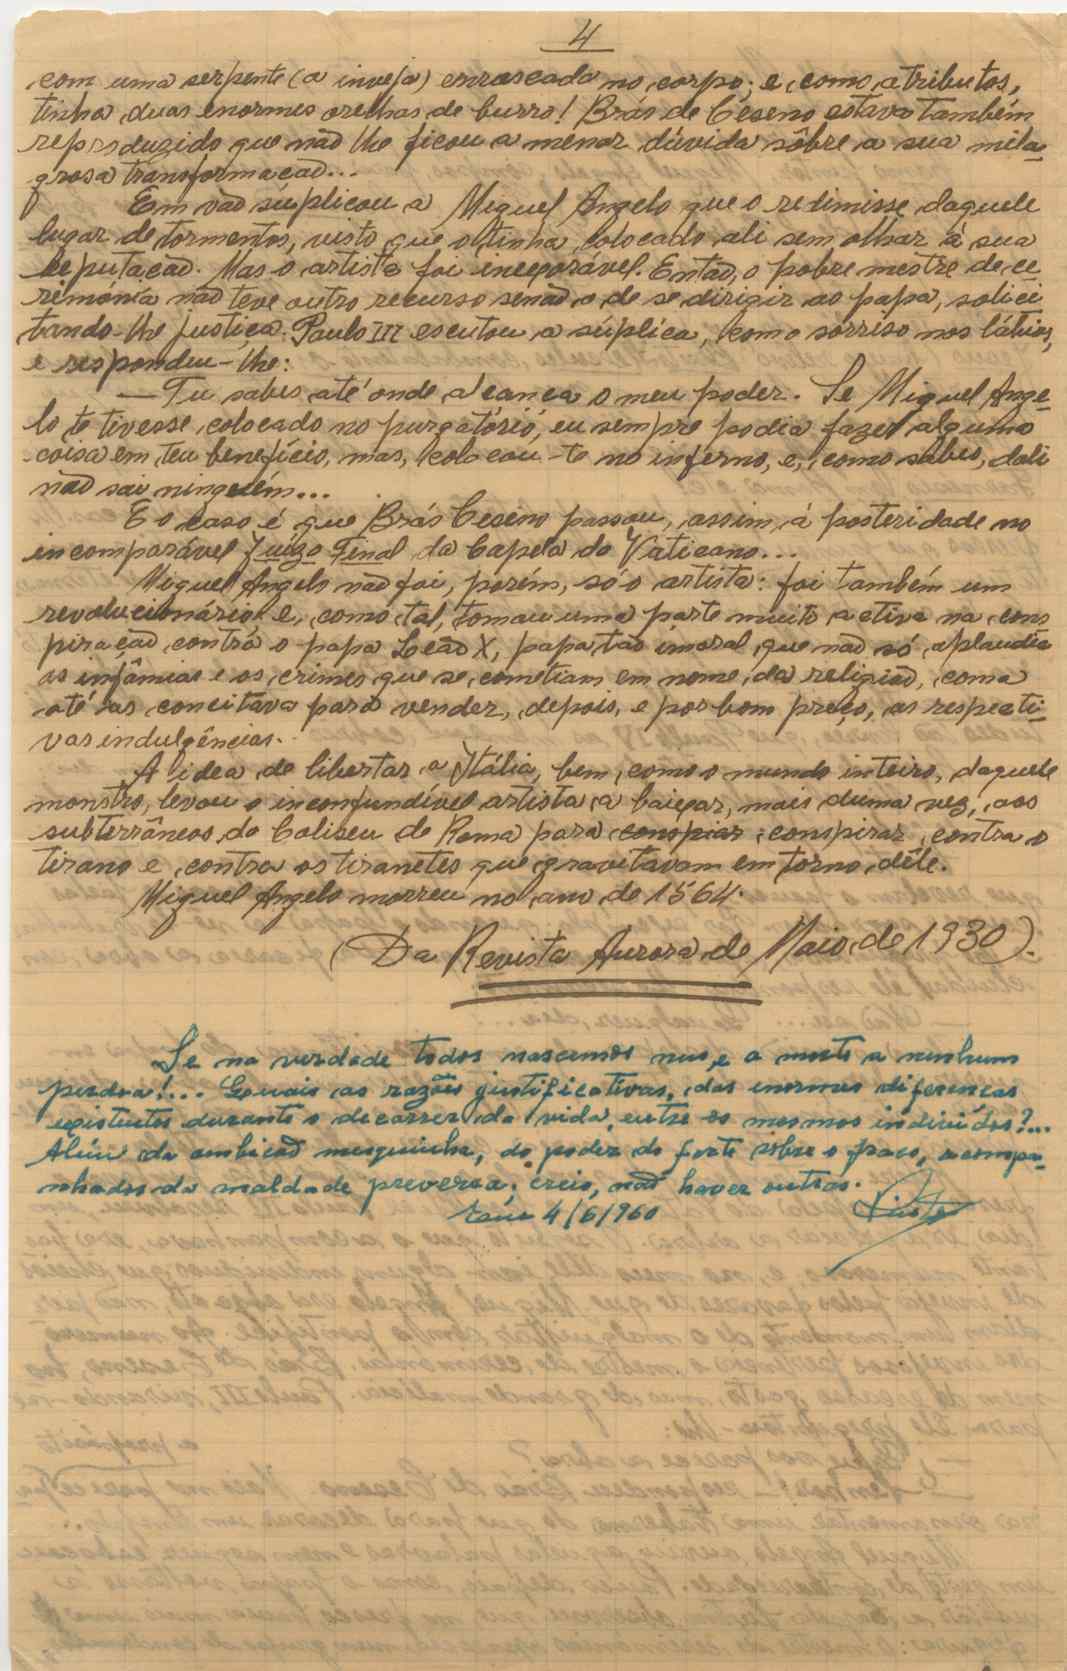 4
com uma serpente (a inveja) enroscada no corpo; e, como atributos,
tinha duas enormes orelhas de burro! Brás de Ceseno estava também
reproduzido que não lhe ficou a menor dúvida sôbre a sua mila-
grosa transformação...
Em vão súplicou a Miguel Angelo que o redimisse daquele
lugar de tormentos, visto que o tinha colocado ali sem olhar à sua
reputação. Mas o artista foi inexorável. Então, o pobre mestre de ce
rimónia não teve outro recurso senão o de se dirigir ao papa, solici
tando-lhe justiça. Paulo III escutou a súplica, com o sorriso nos lábios,
e respondeu-lhe:
— Tu sabes até onde alcança o meu poder. Se Miguel Ange-
lo te tivesse colocado no purgatório, eu sempre podia fazer alguma
coisa em teu benefício, mas, colocou-te no inferno, e, como sabes, dali
não sai ninguém...
E o caso é que Brás Ceseno passou, assim, à posteridade no
incomparável Juízo Final da Capela do Vaticano...
Miguel Angelo não foi, porém, só o artista: foi também um
revolucionário e, como tal, tomou uma parte muito activa na cons
piração contra o papa Leão X, papa tão imoral que não só aplaudia
as infâmias e os crimes que se cometiam em nome da religião, como
até os concitava para vender, depois, e por bom preço, as respecti-
vas indulgências.
A idea de libertar a Itália, bem como o mundo inteiro, daquele
monstro, levou o inconfundível artista a baixar, mais duma vez, aos
subterrâneos do Coliseu de Roma para conspiar conspirar contra o
tirano e contra os tiranetes que gravitavam em torno dêle.
Miguel Angelo morreu no ano de 1564.
(Da Revista Aurora de Maio de 1930).
Se na verdade todos nascemos nus, e a morte a ninhum
perdoa!... Quais as razões justificativas, das enormes diferenças
existentes durante o decorrer da vida, entre os mesmos indivíduos?...
Além da ambição mesquinha, do poder do forte sobre o fraco, acompa-
nhados da maldade preversa; creio, não haver outras.
4/6/960